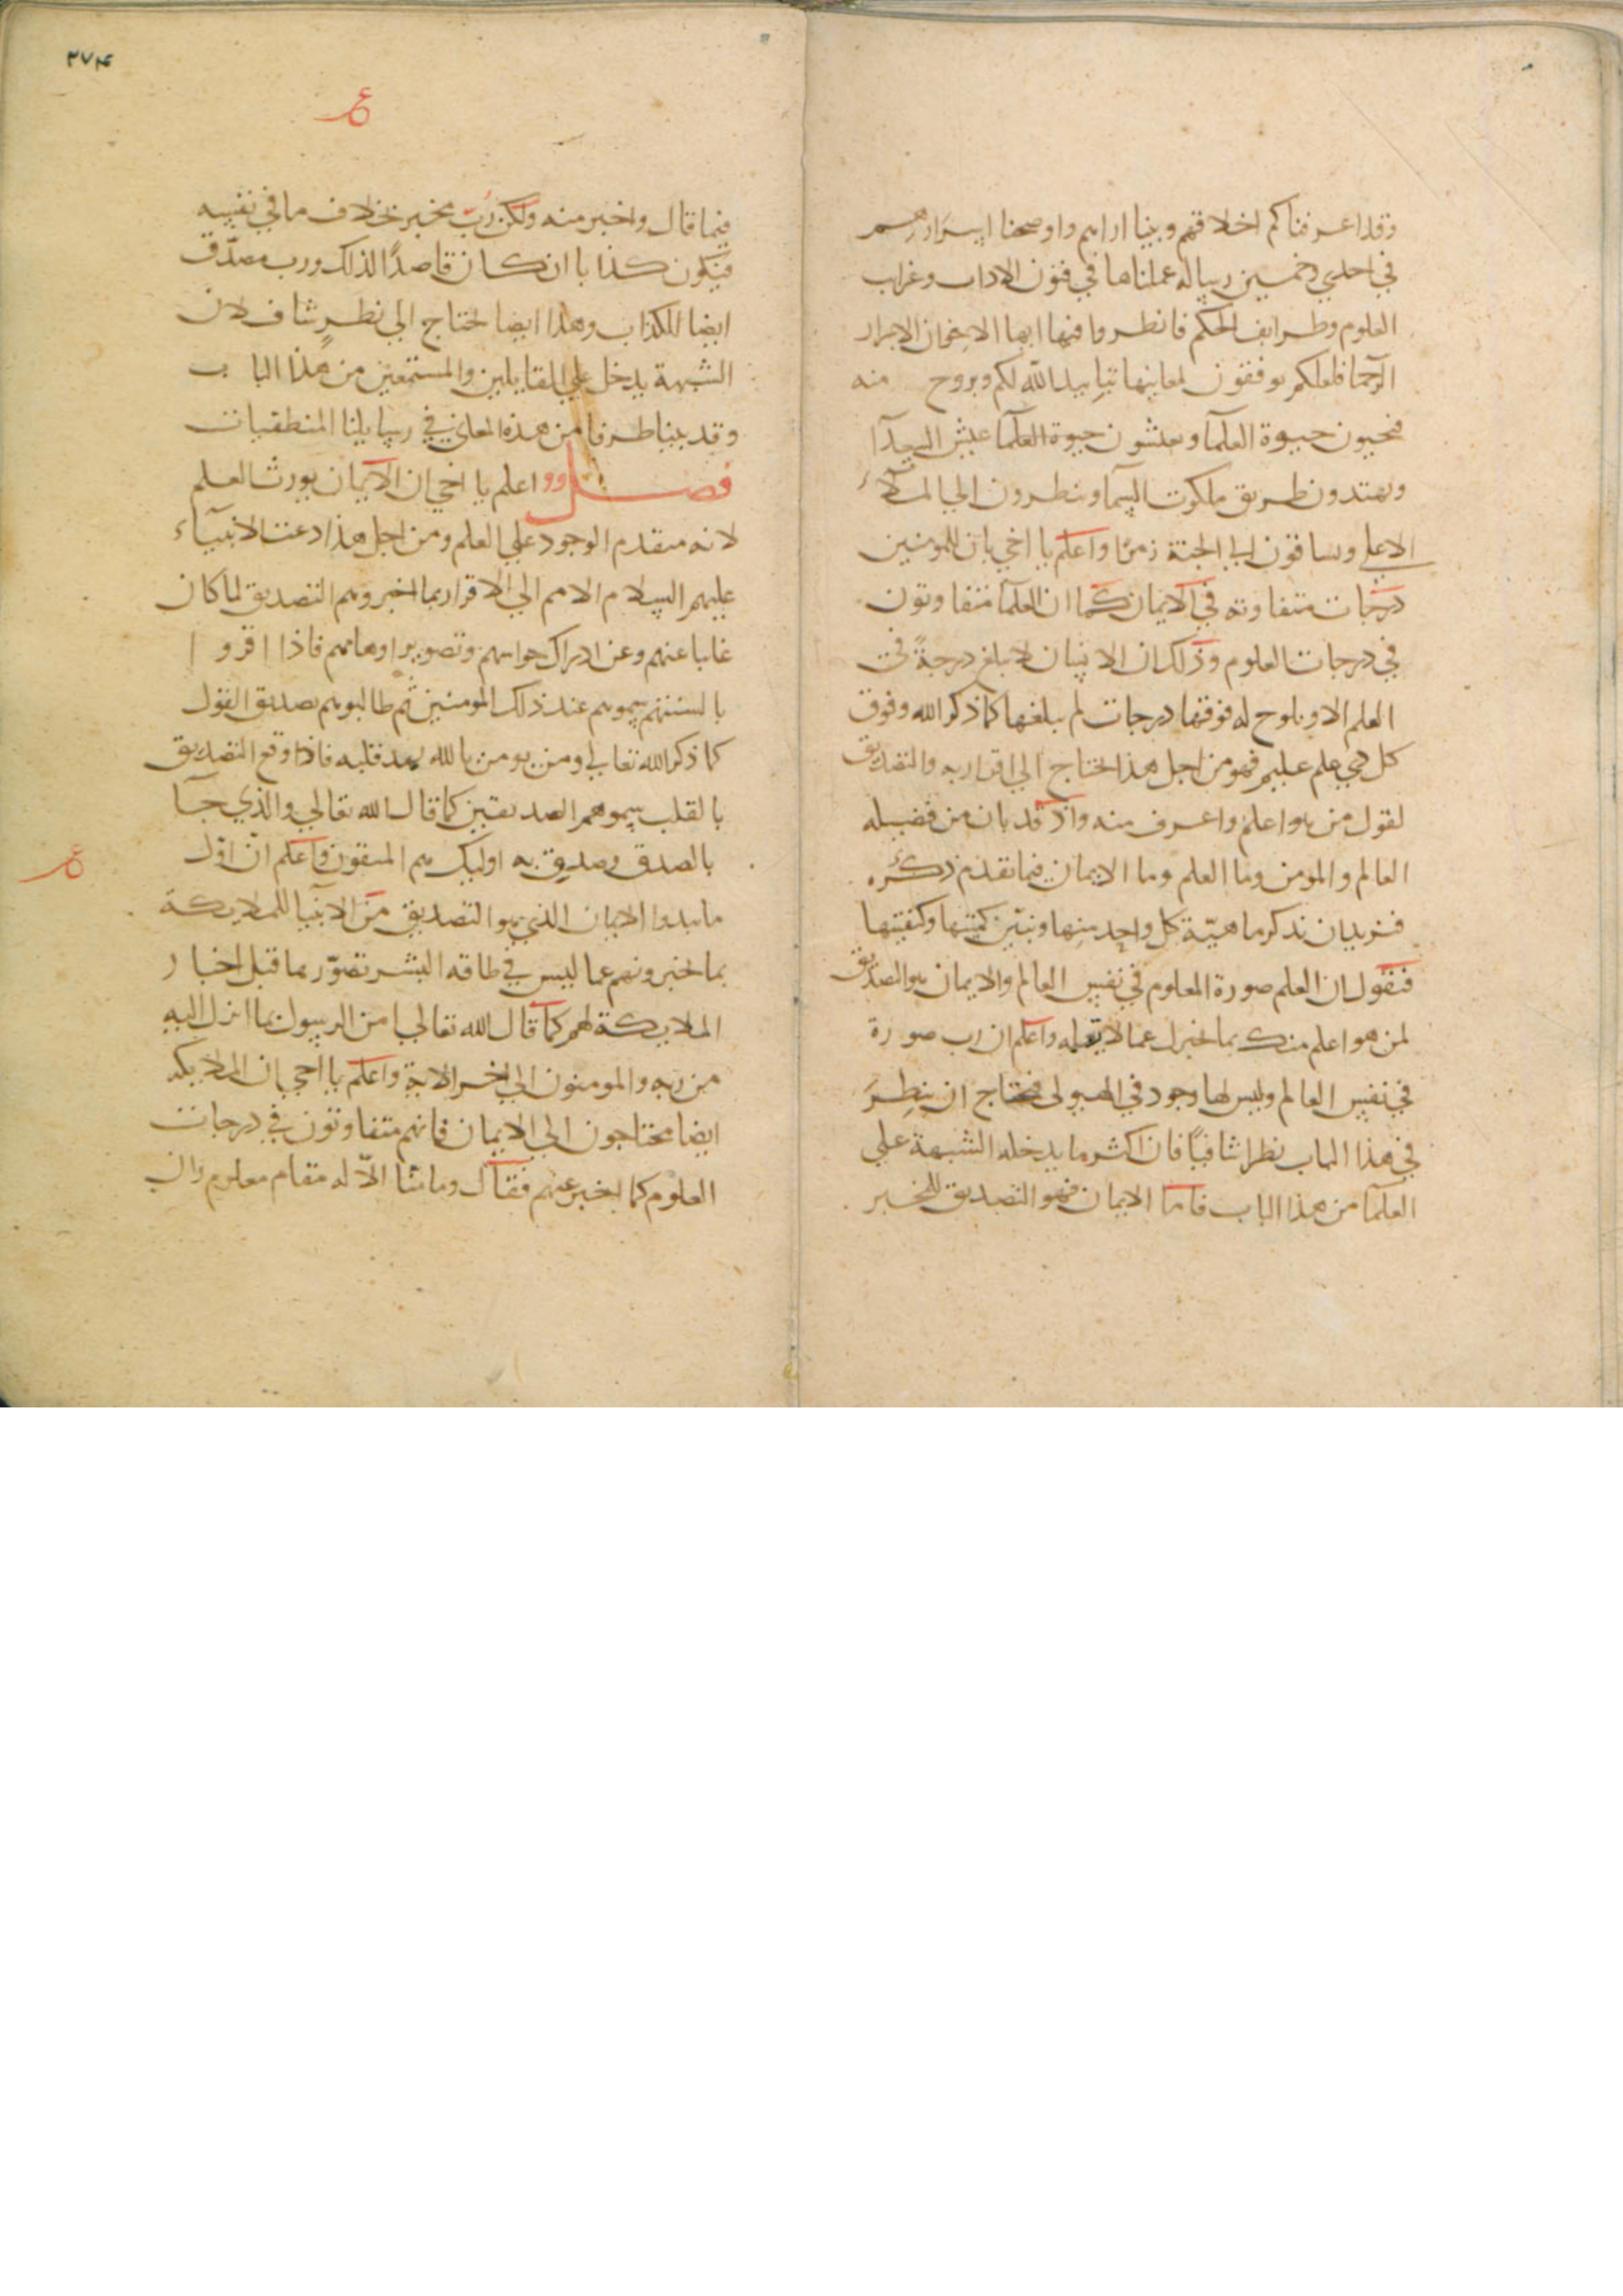 وقد اعرفناكم اخلاقهم وبينا اراهم واوضحنا اسرارهم
في احدي وخمسين رساله عملناها في فنون الاداب وغراب
العلوم وطرايف الحكم فانظروا فيها ايها الاخوان الابرار
الرحما فلعلكم توفقون لمعاينها بتاييد الله لكم وبروح منه
فتحيون حيوة العلما وتعيشون حيوة العلما عيش السعدآ
وتهتدون طريق ملكوت السما وتنظرون الي الملآء
الاعلي وتساقون الي الجنة زمرًا واعلم يا اخي بان للمومنين
درجات متفاوته في الايمان كما ان العلما متفاوتون
في درجات العلوم وذلك ان الانسان لا يبلغ درجةً في
العلم الا ويلوح له فوقها درجات لم يبلغها كما ذكر الله وفوق
كل ذي علم عليم فهو من اجل هذا يحتاج الي اقرار به والتصديق
لقول من هو اعلم واعرف منه واذ قد بان من فضيله
العالم والمومن وما العلم وما الايمان فيما تقدم ذكره
فنريد ان نذكر ماهيّة كل واحد منها ونبيّن كميتها وكيفيتها
فنقول ان العلم صورة المعلوم في نفس العالم والايمان هو التصديق
لمن هو اعلم منك بما يخبرك عما لا تعلمه واعلم ان رب صورة
في نفس العالم وليس لها وجود في الهيولى فتحتاج ان ينظر
في هذا الباب نظرا شافيًا فان اكثر ما يدخله الشبهة علي
العلما من هذا الباب فاما الايمان فهو التصديق للمخبر
٢٧٤
فيما قال واخبر منه ولكن رب مخبر بخلاف ما في نفسه
فيكون كذابا ان كان قاصدًا لذلك ورب مصدّق
ايضا للكذاب وهذا ايضا يحتاج الي نظرٍ شاف لان
الشبهة يدخل علي القايلين والمستمعين من هذا الباب
وقد بينا طرفا من هذه المعاني في رسايلنا المنطقيات
فصل اعلم يا اخي ان الايمان يورث العلم
لانه متقدم الوجود علي العلم ومن اجل هذا دعت الانبيآء
عليهم السلام الامم الي الاقرار بما اخبروهم التصديق لما كان
غايبا عنهم وعن ادراك حواسهم وتصوير اوهامهم فاذا اقروا
بالسنتهم سموهم عند ذلك المومنين ثم طالبوهم بصديق القول
كما ذكر الله تعالي ومن يومن بالله يهد قلبه فاذا وقع التصديق
بالقلب سموهم الصديقين كما قال الله تعالي والذي جآ
بالصدق وصدق به اوليك هم المتقون واعلم انّ اوّل
ما يبدوا الايمان الذي هو التصديق من الانبيا للملايكة
بما يخبرونهم عما ليس في طاقه البشر تصوّر بما قبل اخبار
الملايكة لهم كما قال الله تعالي امن الرسول بما انزل اليه
من ربه والمومنون الي اخر الاية واعلم يا اخي بان الملايكة
ايضا محتاجون الي الايمان فانهم متفاوتون في درجات
العلوم كما يخبر عنهم فقال وما منا الّا له مقام معلوم وان